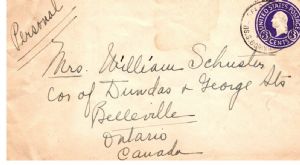 Personal
UNITED STATES POSTAGE
CENTS
Mrs. William Schuster
cor of Dundas & George Sts
Belleville
Ontario
Canada